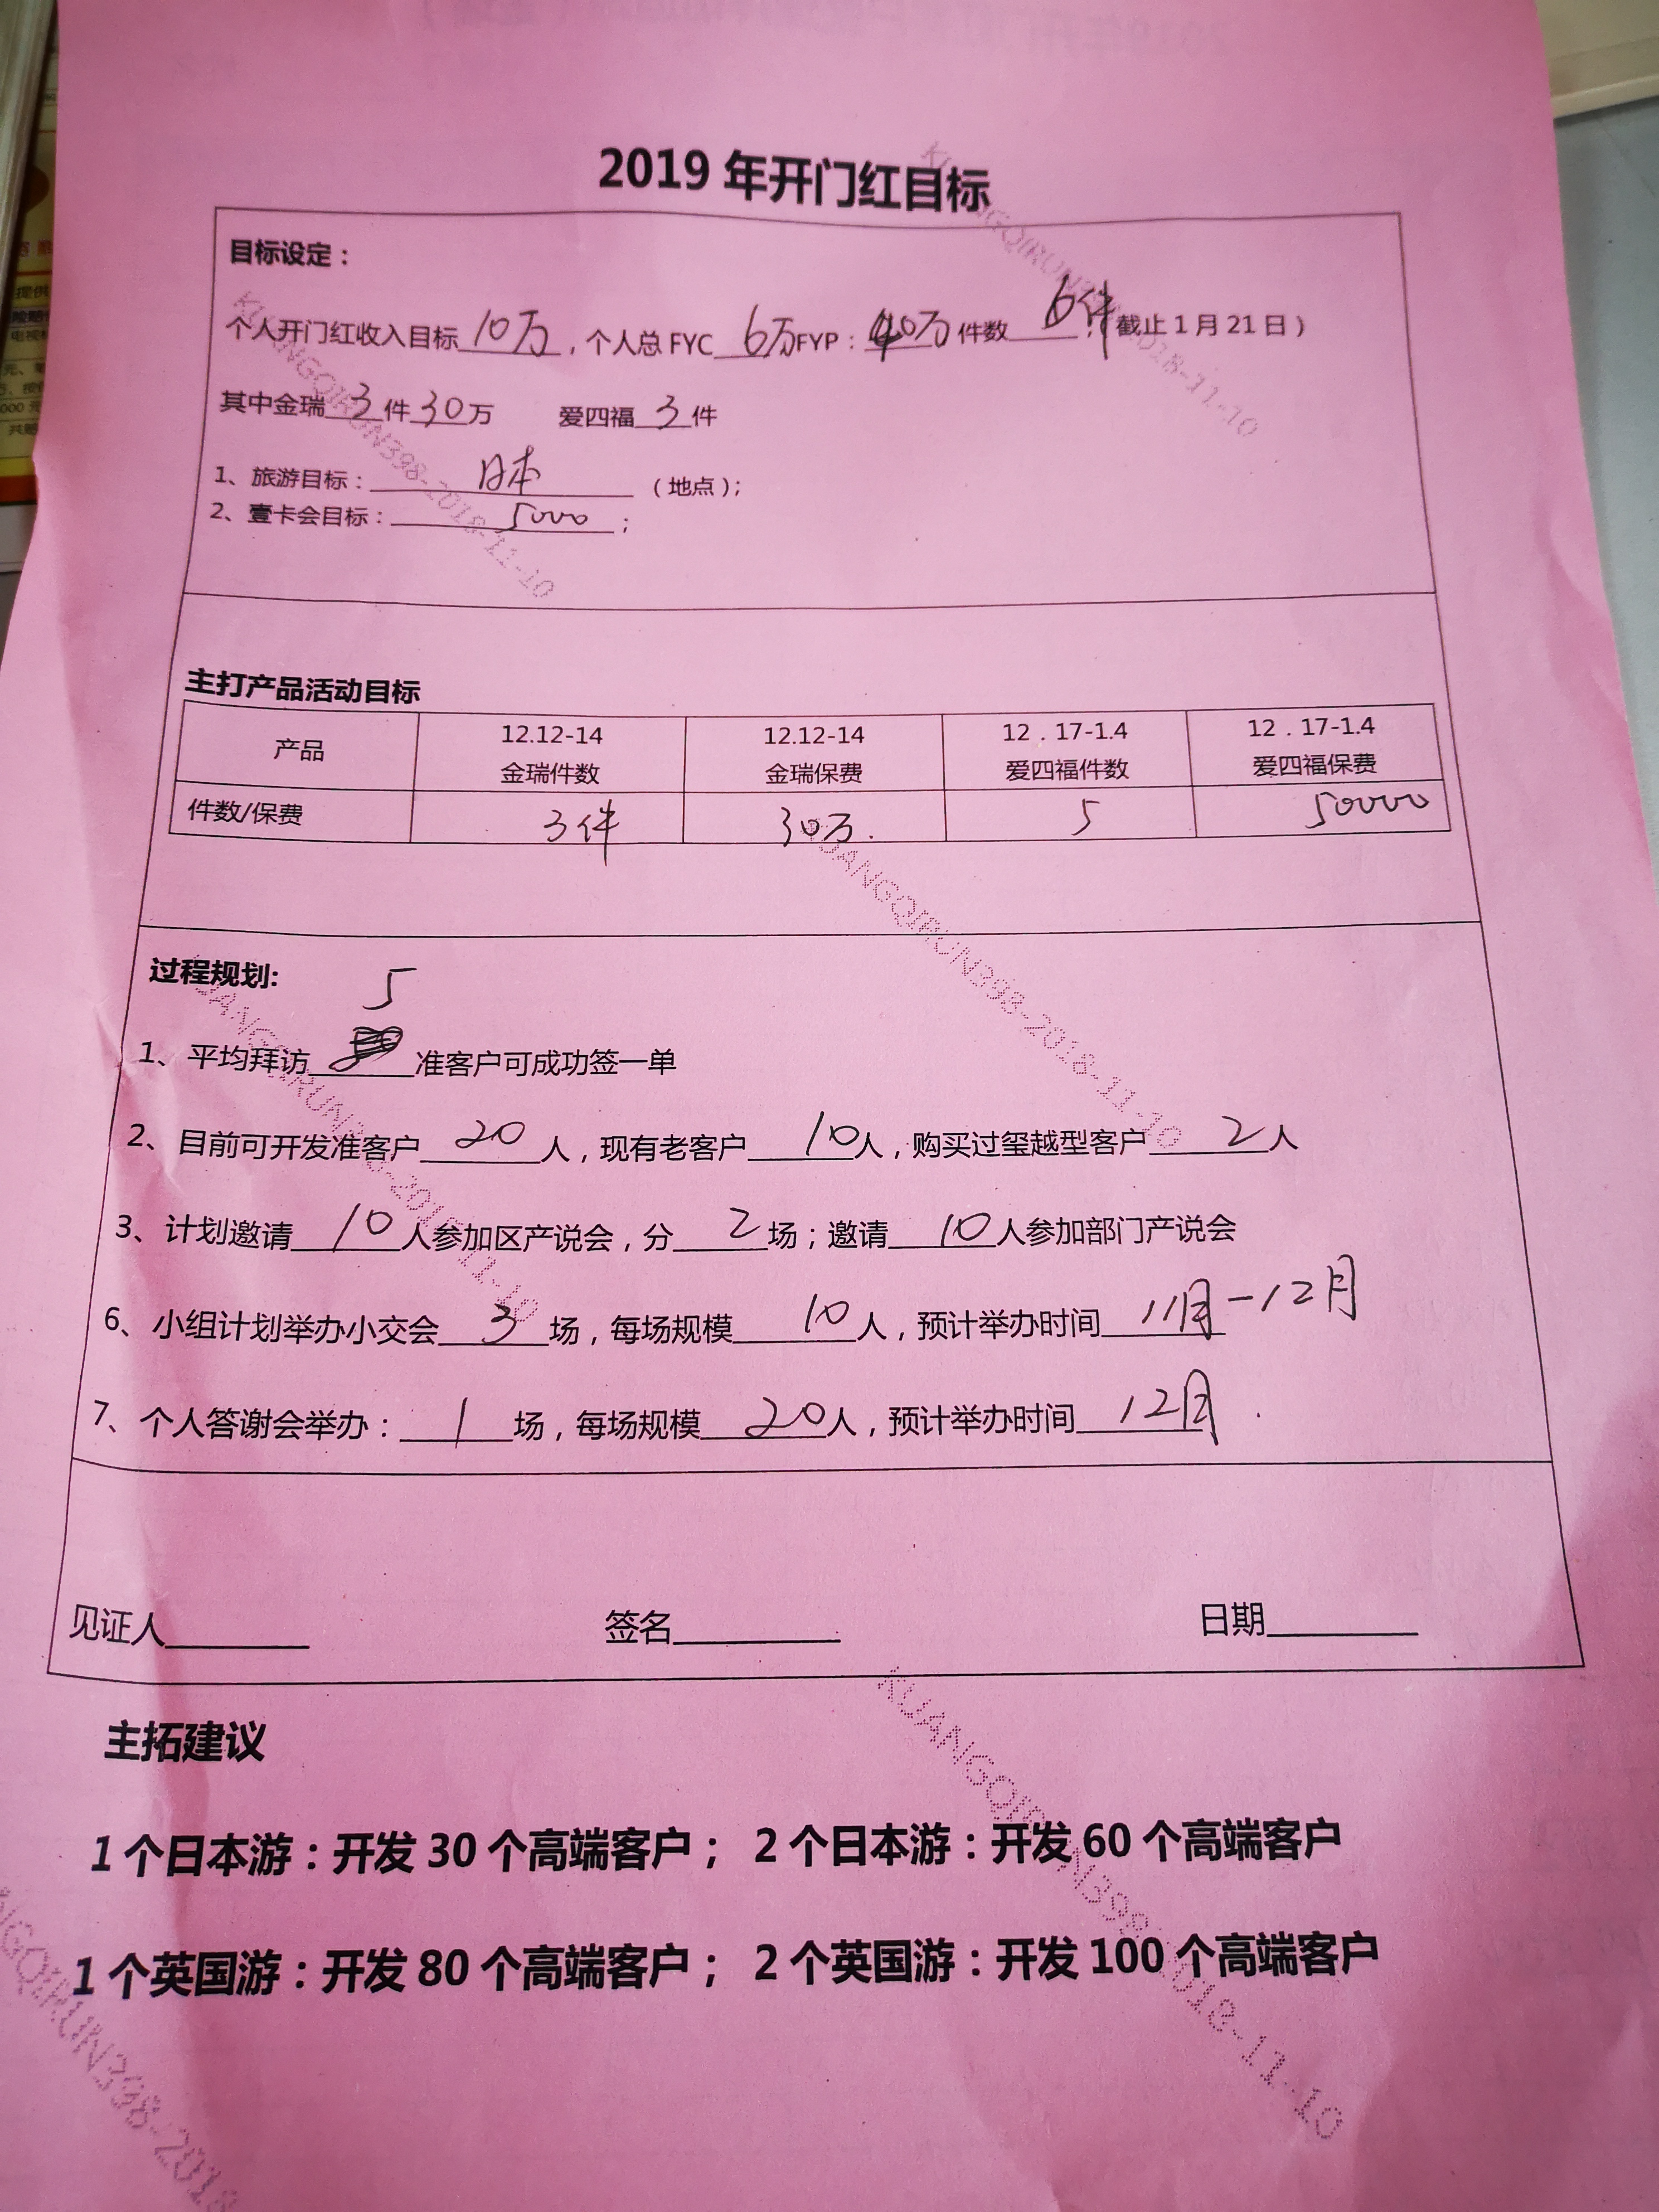 2019 年开门红目标
目标设定：
个人开门红收入目标 10万，个人总 FYC 6万 FYP：40万 件数 6件；（截止 1 月 21 日）
其中金瑞 3 件 30 万 爱四福 3 件
1、旅游目标： 日本 （地点）；
2、壹卡会目标： 5000 ；
主打产品活动目标
产品 12.12-14 金瑞件数 12.12-14 金瑞保费 12．17-1.4 爱四福件数 12．17-1.4 爱四福保费
件数/保费 3件 30万. 5 50000
过程规划:
1、平均拜访 5 准客户可成功签一单
2、目前可开发准客户 20 人，现有老客户 10 人，购买过玺越型客户 2 人
3、计划邀请 10 人参加区产说会，分 2 场；邀请 10 人参加部门产说会
6、小组计划举办小交会 3 场，每场规模 10 人，预计举办时间 11月-12月
7、个人答谢会举办： 1 场，每场规模 20 人，预计举办时间 12月.
见证人 签名 日期
主拓建议
1 个日本游：开发 30 个高端客户； 2 个日本游：开发 60 个高端客户
1 个英国游：开发 80 个高端客户； 2 个英国游：开发 100 个高端客户
KUANGQIRUN398-2018-11-10